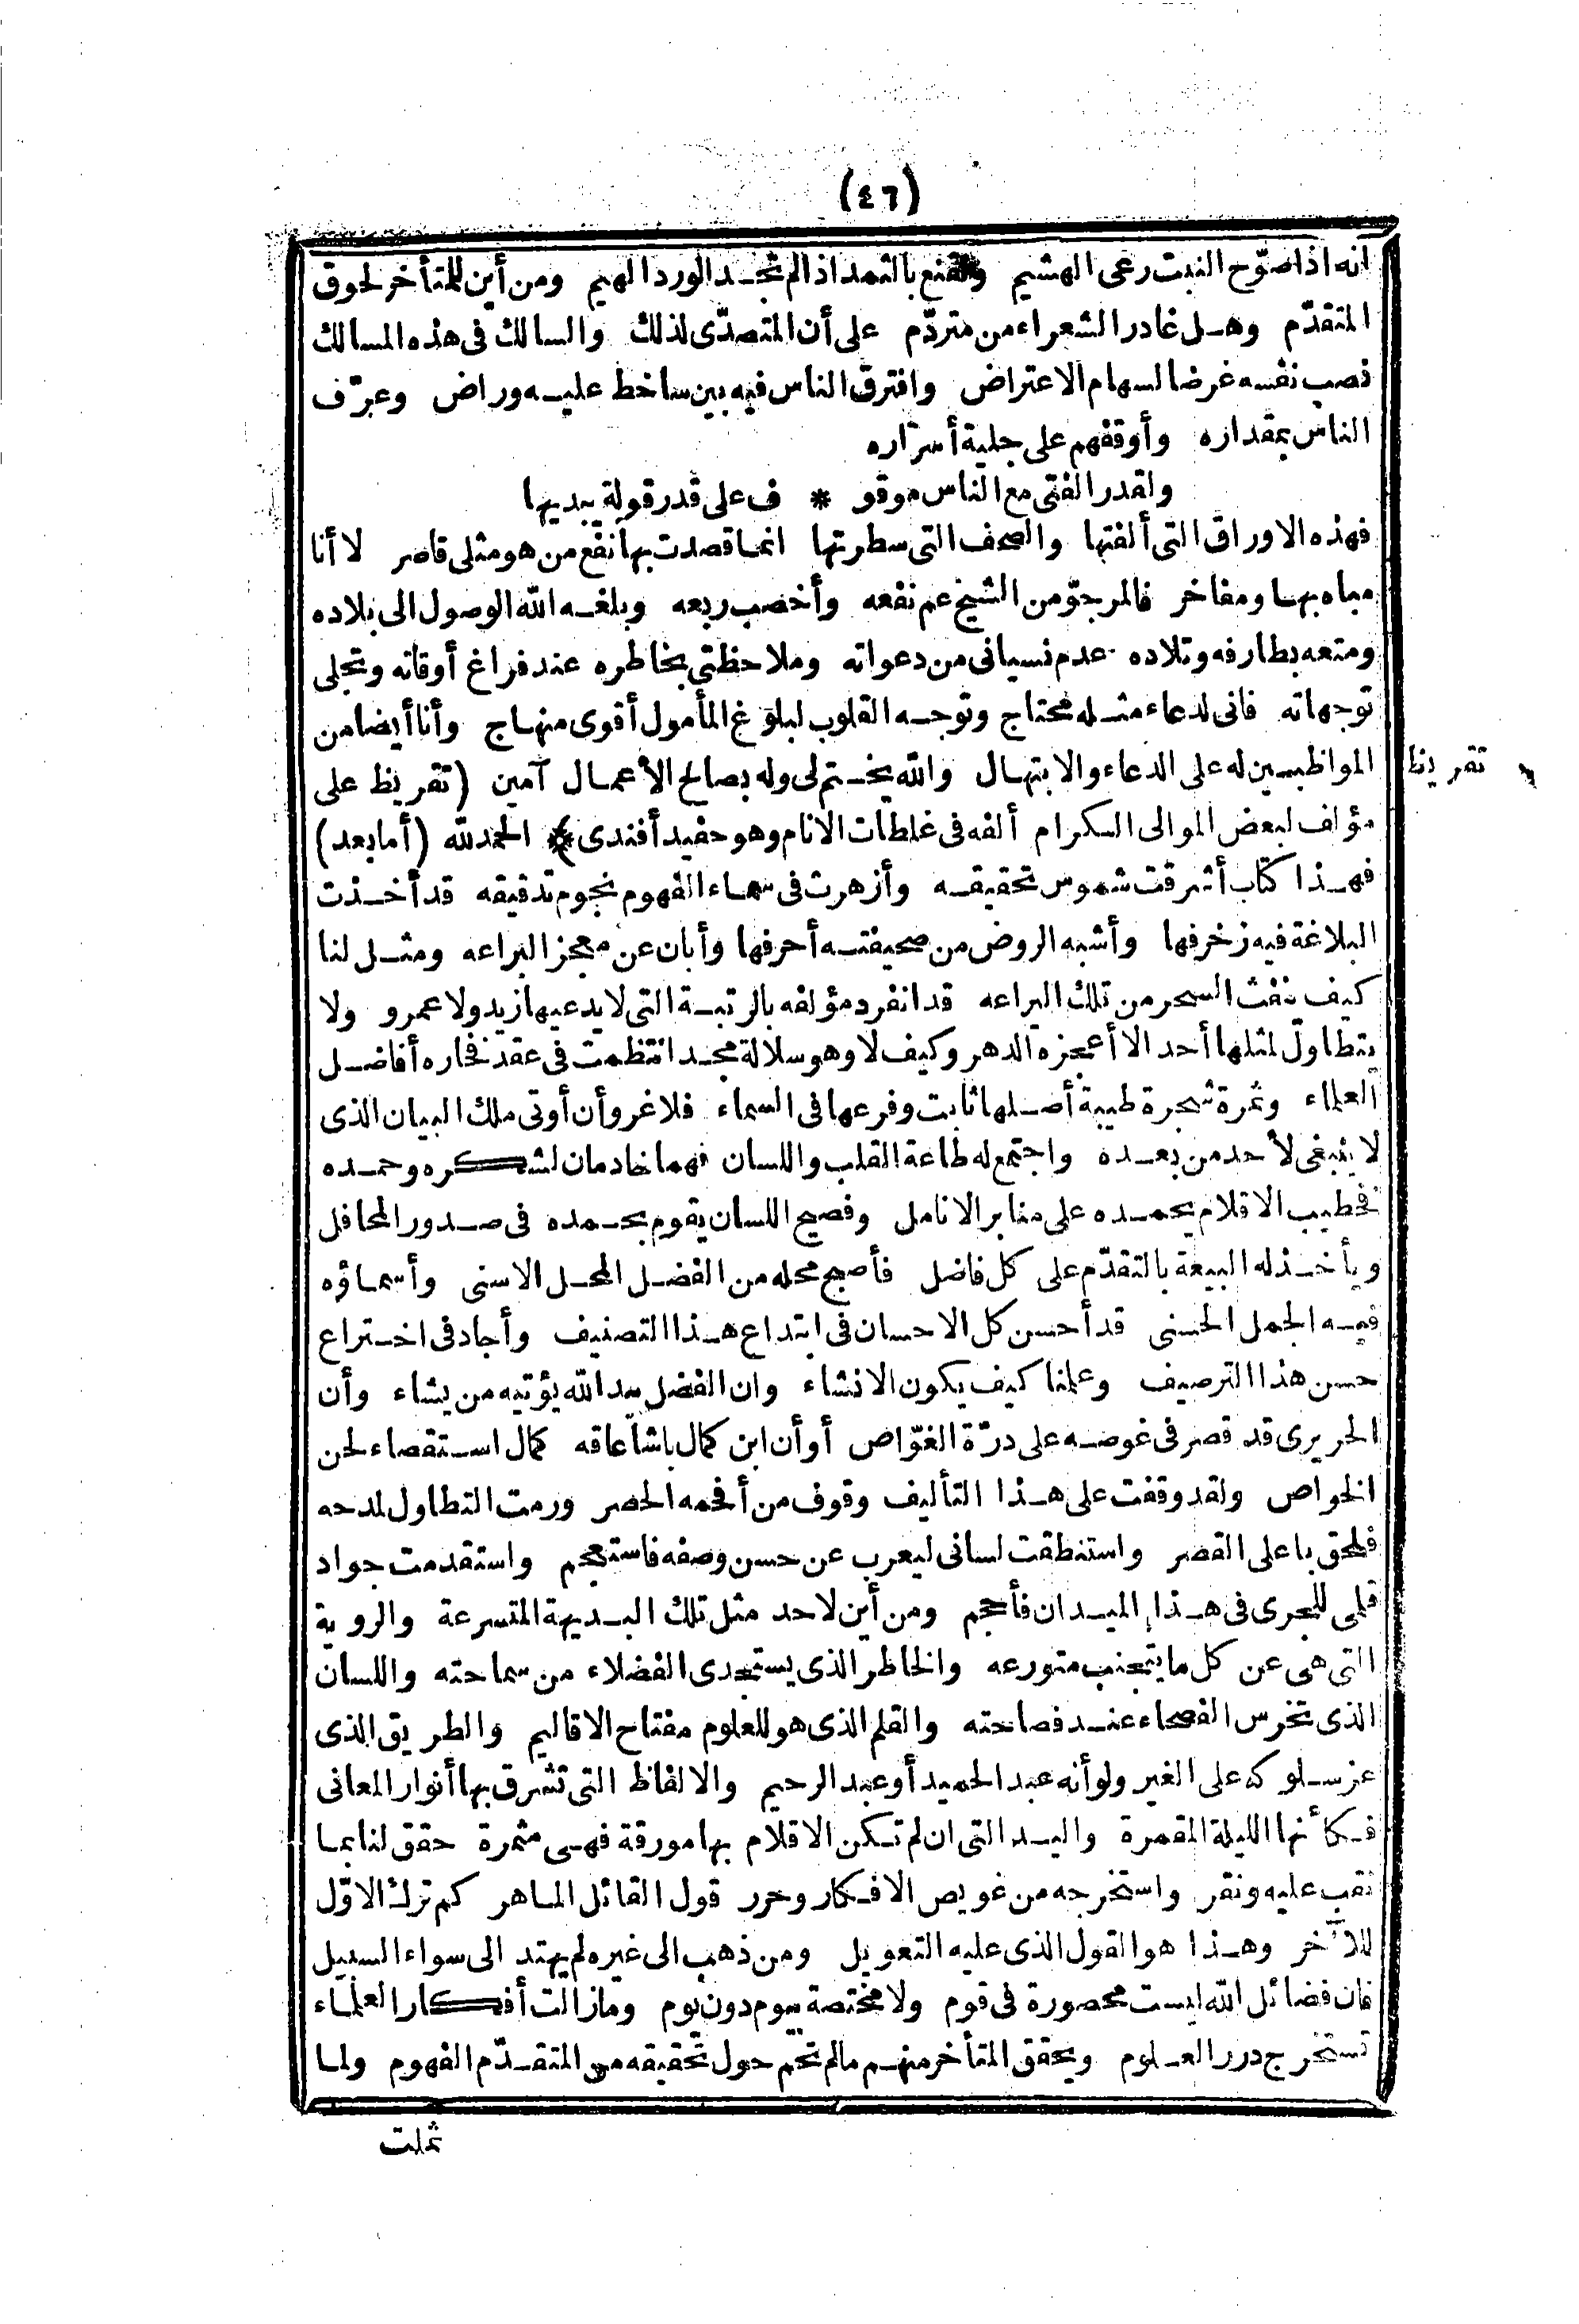 (٤٦)
انه اذا صوّح النبت رعى الهشيم ويقنع بالثمد اذا لم تجد الورد الهيم ومن أين للمتأخر لحوق
المتقدّم وهل غادر الشعراء من متردّم على أن المتصدّى لذلك والسالك فى هذه المسالك
نصب نفسه غرضا لسهام الاعتراض وافترق الناس فيه بين ساخط عليه وراض وعرّف
الناس بمقداره وأوقفهم على جلية أسراره
ولقدر الفتى مع الناس موقو * ف على قدر قولة يبديها
فهذه الاوراق التى ألفتها والصحف التى سطرتها انما قصدت بها نفع من هو مثلى قاصر لا أنا
مباه بها ومفاخر فالمرجوّ من الشيخ عم نفعه وأخصب ربعه وبلغه الله الوصول الى بلاده
ومتعه بطارفه وتلاده عدم نسيانى من دعواته وملاحظتى بخاطره عند فراغ أوقاته وتجلى
توجهاته فانى لدعاء مثله محتاج وتوجه القلوب لبلوغ المأمول أقوى منهاج وأنا أيضا من
المواظبين له على الدعاء والابتهال والله يختم لى وله بصالح الأعمال آمين (تقريظ على
تقريظ
مؤلف لبعض الموالى الكرام ألفه فى غلطات الانام وهو حفيد أفندى) الحمد لله (أما بعد)
فهذا كتاب أشرقت شموس تحقيقه وأزهرت فى سماء الفهوم نجوم تدقيقه قد أخذت
البلاغة فيه زخرفها وأشبه الروض من صحيفته أحرفها وأبان عن معجز البراعه ومثل لنا
كيف نفث السحر من تلك اليراعه قد انفرد مؤلفه بالرتبة التى لا يدعيها زيد ولا عمرو ولا
يتطاول لمثلها أحد الا أعجزه الدهر وكيف لا وهو سلالة مجد انتظمت فى عقد فخاره أفاضل
العلماء وثمرة شجرة طيبة أصلها ثابت وفرعها فى السماء فلا غرو أن أوتى ملك البيان الذى
لا ينبغى لأحد من بعده واجتمع له طاعة القلب واللسان فهما خادمان لشكره وحمده
فخطيب الاقلام يحمده على منابر الانامل وفصيح اللسان يقوم بحمده فى صدور المحافل
ويأخذ له البيعة بالتقدّم على كل فاضل فأصبح محله من الفضل المحل الاسنى وأسماؤه
فيه الجمل الحسنى قد أحسن كل الاحسان فى ابتداع هذا التصنيف وأجاد فى اختراع
حسن هذا الترصيف وعلمنا كيف يكون الانشاء وان الفضل بيد الله يؤتيه من يشاء وأن
الحريرى قد قصر فى غوصه على درّة الغوّاص أو أن ابن كمال باشا عاقه كمال استقصاء لحن
الخواص ولقد وقفت على هذا التأليف وقوف من أفحمه الحصر ورمت التطاول لمدحه
فلحق باعلى القصر واستنطقت لسانى ليعرب عن حسن وصفه فاستعجم واستقدمت جواد
قلمى للجرى فى هذا الميدان فأحجم ومن أين لاحد مثل تلك البديهة المتسرعة والروية
التى هى عن كل ما يتجنب متورعه والخاطر الذى يستجدى الفضلاء من سماحته واللسان
الذى تخرس الفصحاء عند فصاحته والقلم الذى هو للعلوم مفتاح الاقاليم والطريق الذى
عز سلوكه على الغير ولو أنه عبد الحميد أو عبد الرحيم والالفاظ التى تشرق بها أنوار المعانى
فكأنها الليلة المقمرة واليد التى ان لم تكن الاقلام بها مورقة فهى مثمرة حقق لنا بما
نقب عليه ونقر واستخرجه من غويص الافكار وحرر قول القائل الماهر كم ترك الاوّل
للآخر وهذا هو القول الذى عليه التعويل ومن ذهب الى غيره لم يهتد الى سواء السبيل
فان فضائل الله ليست محصورة فى قوم ولا مختصة بيوم دون يوم ومازالت أفكار العلماء
تستخرج درر العلوم ويحقق المتأخر منهم مالم تحم حول تحقيقه من المتقدّم الفهوم ولما
ثملت